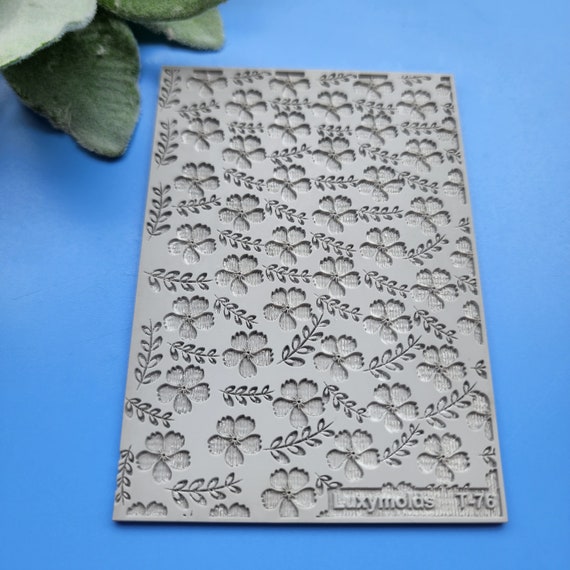 Luxymolds T-76